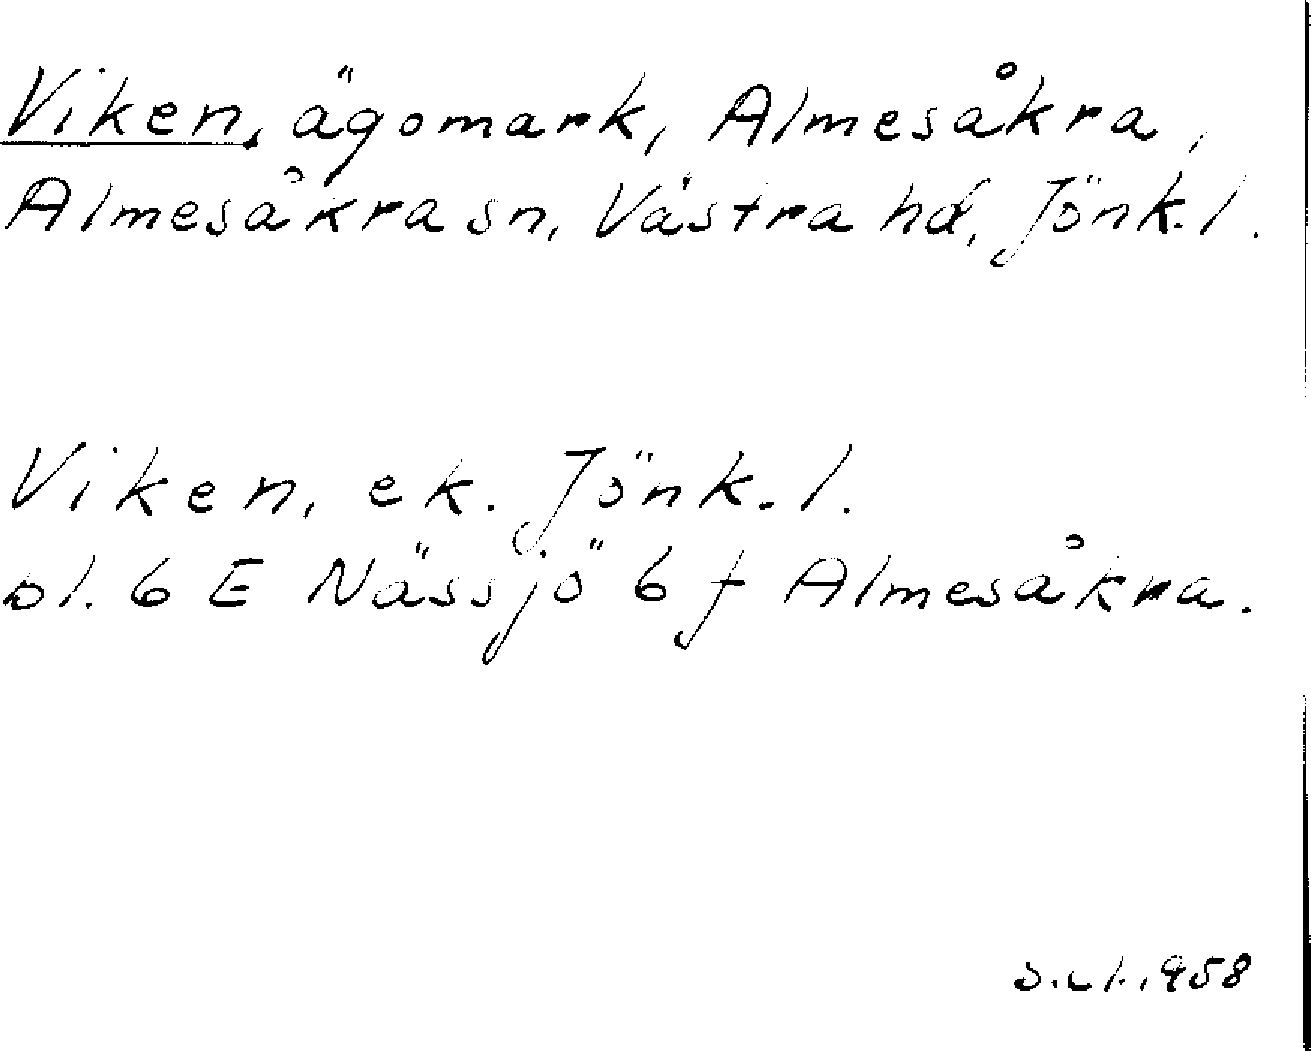 Viken, ägomark, Almesåkra,
Almesåkra sn, Västra hd, Jönk. l.
Viken, ek. Jönk. l.
bl. 6 E Nässjö 6 f Almesåkra.
1958